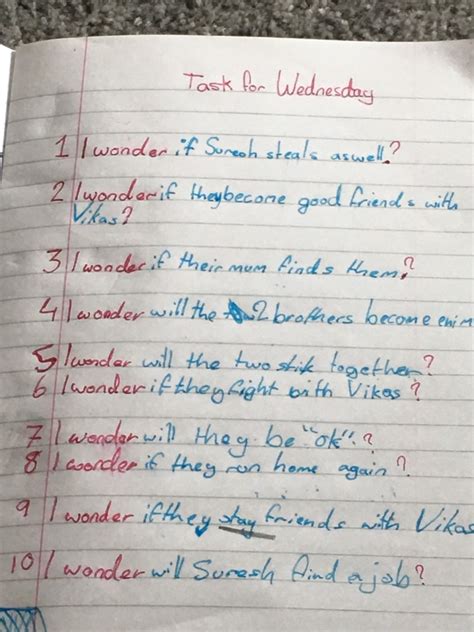 Task for Wednesday
1 I wonder if Suresh steals aswell?
2 I wonder if they become good friends with
Vikas?
3 I wonder if their mum finds them?
4 I wonder will the 2 brothers become enim
5 I wonder will the two stik together?
6 I wonder if they fight bith Vikas?
7 I wonder will they be "ok"?
8 I wonder if they run home again?
9 I wonder if they stay friends with Vikas
10 I wonder will Suresh find a job?